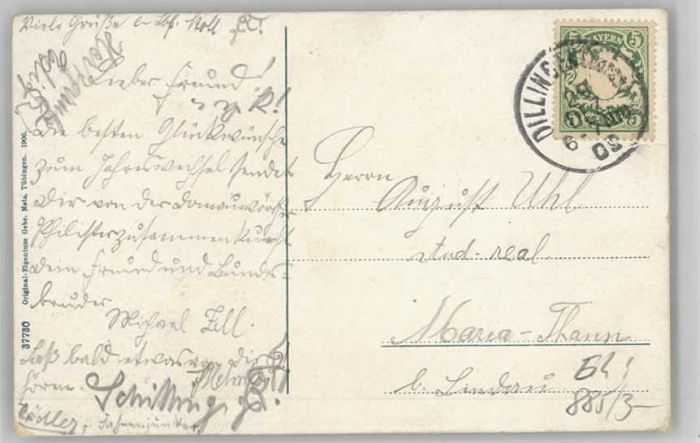 Viele Grüße
Lieber Freund!
Die besten Glückwünsche
zum Jahreswechsel sendet
Dir von der Donauwörther
Philisterzusammenkunft
Dein Freund und Bundes-
bruder
Michael Zill.
Laß bald etwas von Dir
hören.
Schilling
Original-Eigentum Gebr. Metz, Tübingen. 1906.
37730
BAYERN
5 5
5 5
DILLINGEN
09
Herrn
August Uhl
stud. real
Maria-Thann
b. Lindau
885/3-